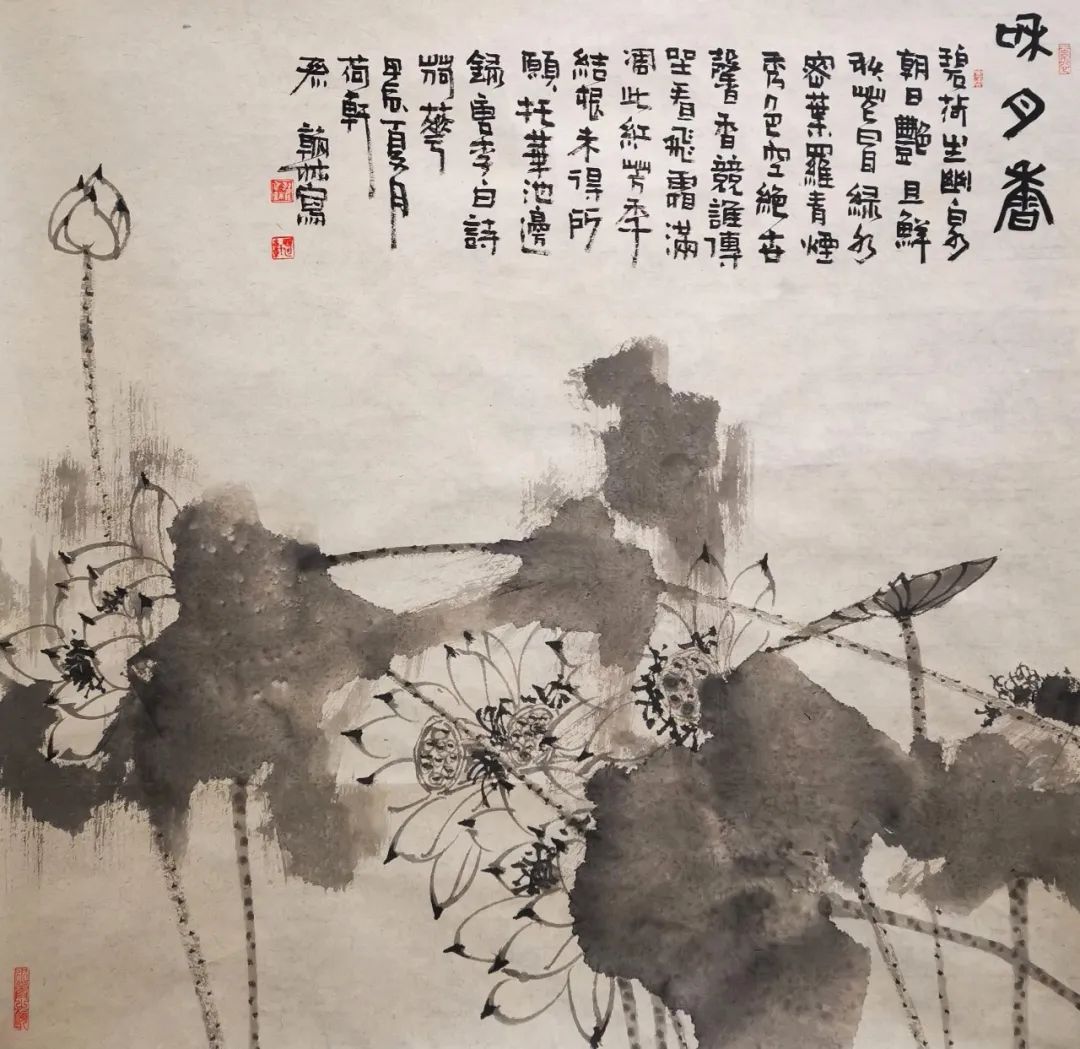 月香
碧荷生幽泉
朝日艷且鮮
秋花冒綠水
密葉羅青煙
秀色空絕世
馨香競誰傳
坐看飛霜滿
凋此紅芳年
結根未得所
願托華池邊
錄唐李白詩
荷華
甲辰夏月
荷軒
翰林寫